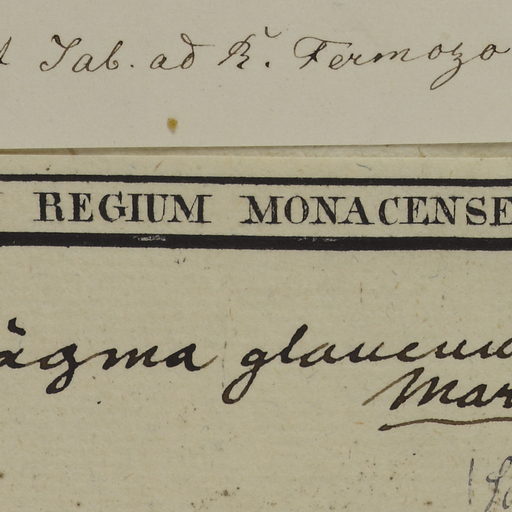 Tab. ad R. Fermozo
REGIUM MONACENSE
ägma glaucum
Mar